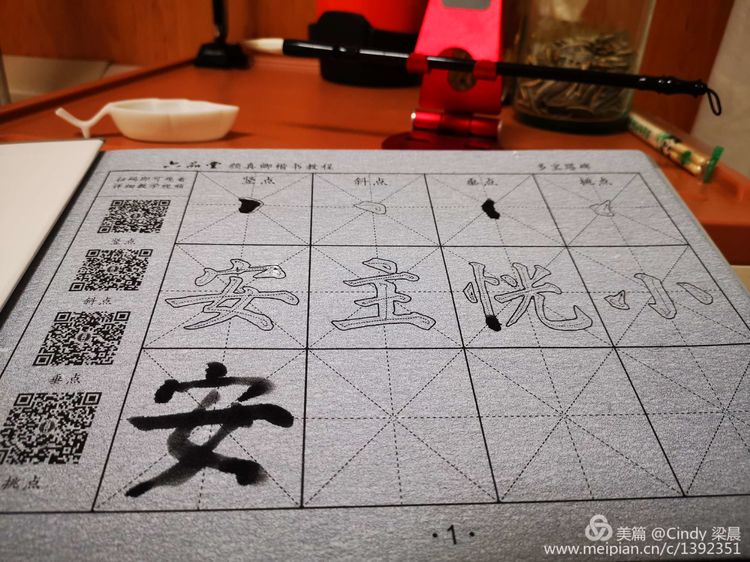 六品堂 颜真卿楷书教程 多宝塔碑
扫码即可观看
详细教学视频
竖点 斜点 垂点 挑点
竖点
斜点
垂点
挑点
安 主 恍 小
安
·1·
美篇 @Cindy 梁晨
www.meipian.cn/c/1392351